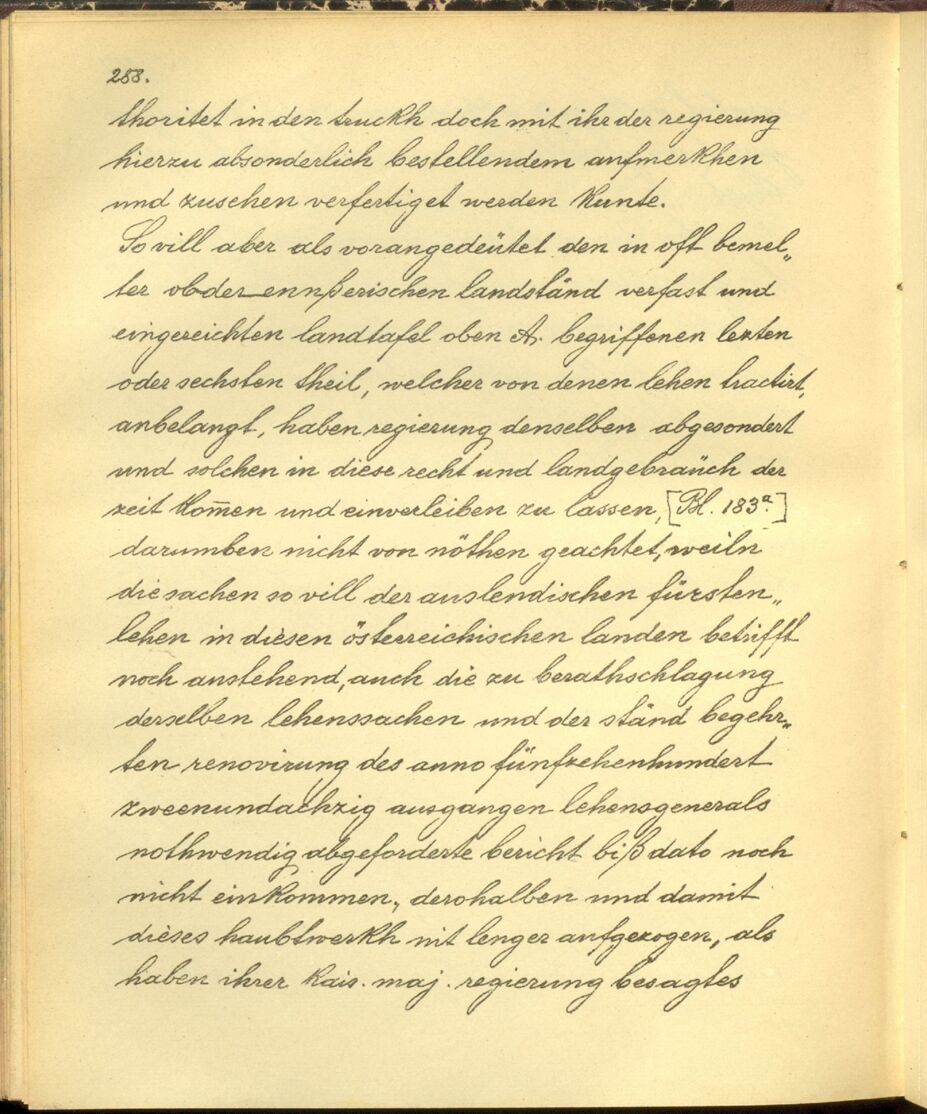 288.
thoritet in den truckh doch mit ihr der regierung
hierzu absonderlich bestellendem aufmerkhen
und zusehen verfertiget werden kunte.
So vill aber als vorangedeütet den in oft bemel„
ter ob der ennßerischen landständ verfast und
eingereichten landtafel oben A. begriffenen lezten
oder sechsten theil, welcher von denen lehen tractirt,
anbelangt, haben regierung denselben abgesondert
und solchen in diese recht und landgebraüch der
zeit kom̅en und einverleiben zu lassen, [Bl. 183ª.]
darumben nicht von nöthen geachtet, weiln
die sachen so vill der auslendischen fürsten„
lehen in diesen österreichischen landen betrifft
noch anstehend, auch die zu berathschlagung
derselben lehenssachen und der ständ begehr„
ten renovirung des anno fünfzehenhundert
zweenundachzig ausgangen lehensgenerals
nothwendig abgeforderte bericht biß dato noch
nicht einkommen, derohalben und damit
dieses haubtwerkh nit lenger aufgezogen, als
haben ihrer kais. maj. regierung besagtes